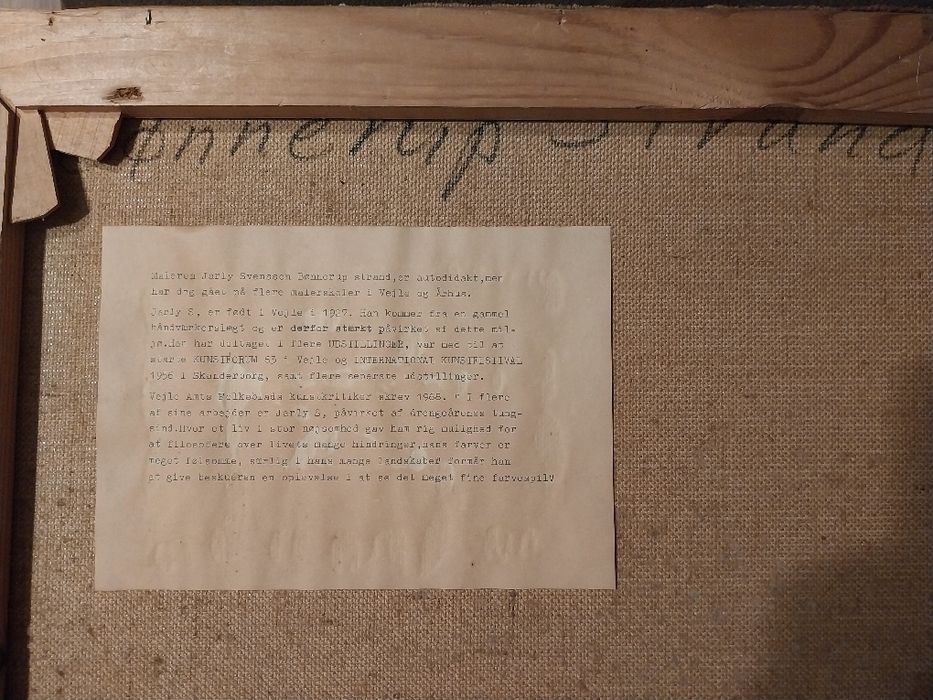 ønnerup Strand
Maleren Jarly Svensson Bønnerup strand,er autodidakt,men
har dog gået på flere malerskoler i Vejle og Århus.
Jarly S, er født i Vejle i 1927. Han kommer fra en gammel
håndværkerslægt og er derfor stærkt påvirket af dette mil-
jø.Han har deltaget i flere UDSTILLINGER, var med til at
starte KUNSTFORUM 63 i Vejle og INTERNATIONAL KUNSTFESTIVAL
1966 i Skanderborg, samt flere seperate udstillinger.
Vejle Amts Folkeblads kunstkritiker skrev 1968. " I flere
af sine arbejder er Jarly S, påvirket af drengeårenes tung-
sind.Hvor et liv i stor nøjsomhed gav ham rig mulighed for
at filosofere over livets mange hindringer,hans farver er
meget følsomme, særlig i hans mange landskaber formår han
at give beskueren en oplevelse i at se det meget fine farvespil"